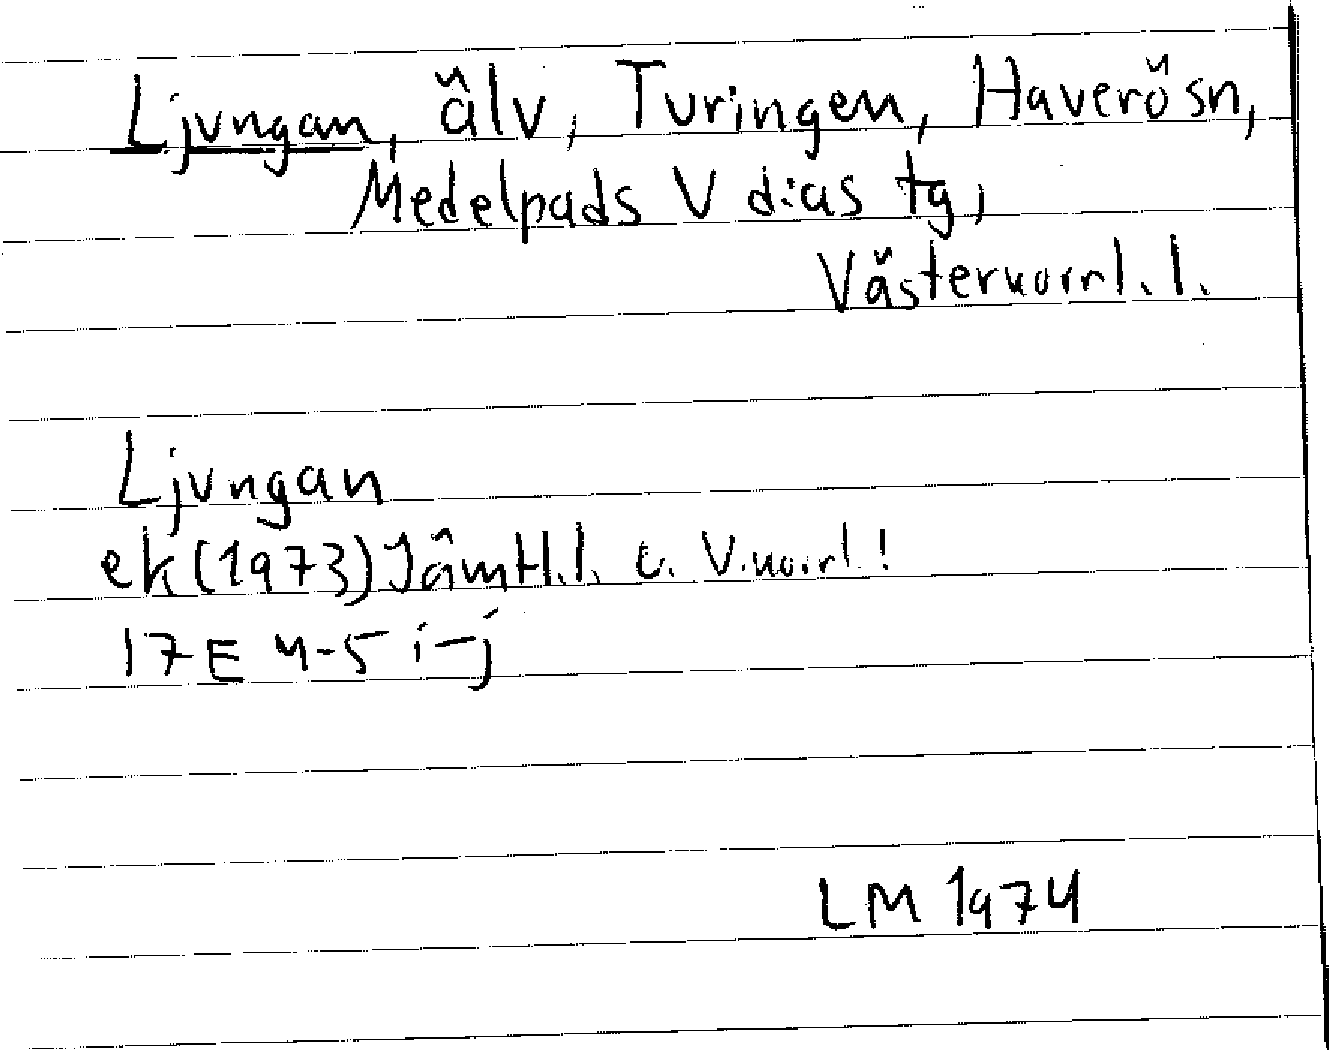 Ljungan, älv, Turingen, Haverö sn,
Medelpads V d:as tg,
Västernorrl. l.
Ljungan
ek (1973) Jämtl. l. o. V.norrl!
17E 4-5 i-j
LM 1974